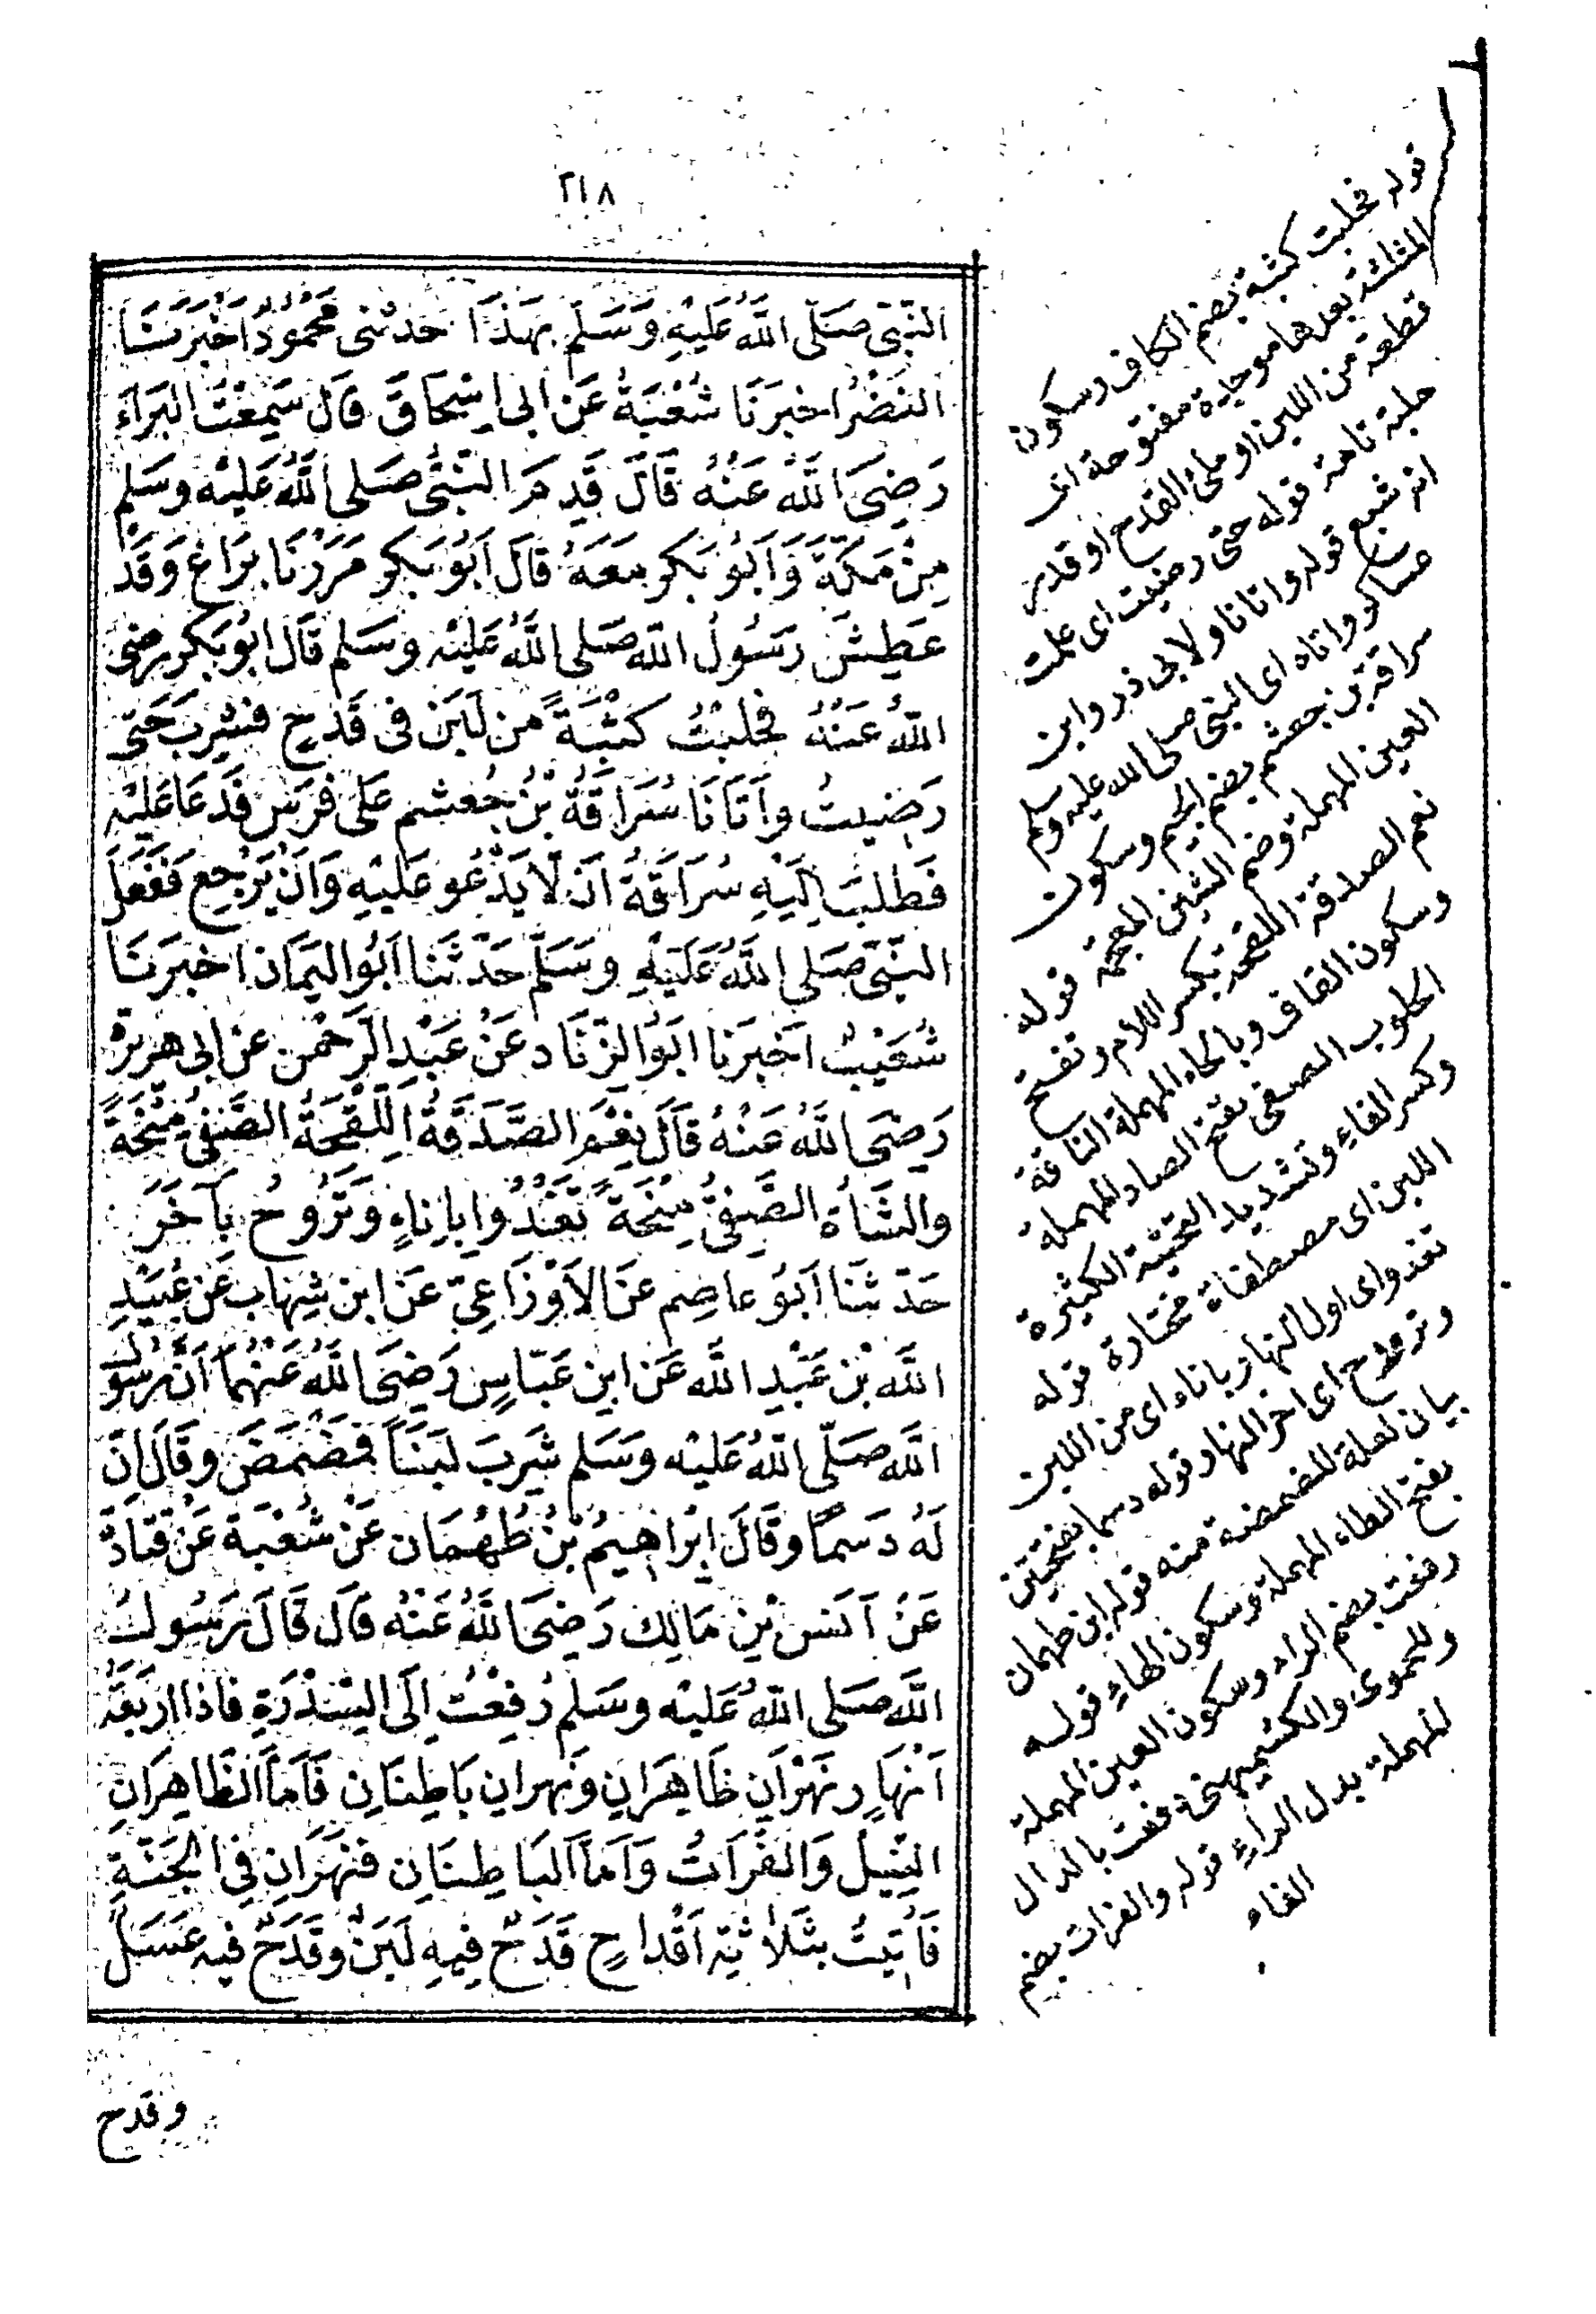 ٢١٨
النَّبِيِّ صَلَّى اللَّهُ عَلَيْهِ وَسَلَّمَ بِهَذَا حَدثنى مَحْمُودٌ اَخْبَرَنَا
النَضْرُ اخبرَنَا شُعْبَةُ عَن ابى اِسْحَاقَ قَالَ سَمِعْتُ البَرَاءَ
رَضِيَ اللَّهُ عَنْهُ قَالَ قَدِمَ النَّبِيُّ صَلى اللَّهُ عَلَيْه وسَلم
مِنْ مَكَّةَ وَاَبُو بَكْرٍ مَعَهُ قَالَ اَبُو بَكر مَرَرْنَا بِرَاعٍ وَقَدْ
عَطِشَ رَسُولُ اللّه صَلى اللَّهُ عَلَيْه وسَلم قَالَ ابُو بَكر رضى
اللَّهُ عَنْهُ فحَلبْتُ كُثْبَةً من لَبَن فى قَدَحٍ فشرِبَ حَتى
رَضِيتُ واَتَانَا سُرَاقَةُ بْنُ جُعشم عَلى فَرَس فَدَعَا عَلَيْهِ
فَطَلبَ اِلَيْهِ سُرَاقَةُ اَنْ لَا يَدْعُو عَلَيْهِ وَاَنْ يَرْجِع فَفَعَلَ
النَّبِيُّ صَلى اللَّهُ عَلَيْهِ وسَلَّمَ حَدَّثَنَا اَبُو اليَمَان اخبَرَنَا
شُعَيْبٌ اَخبَرَنا ابَوُ الزِّنَاد عَنْ عَبْدِ الرَحْمن عَن ابى هريرَة
رَضِىَ اللَّهُ عَنْهُ قَالَ نِعْمَ الصَّدَقَةُ اللِّقْحَةُ الصَّفِىُّ مِنْحَةً
والشَّاةُ الصَّفِىُّ مِنْحَةً تَغْدُوا بِاِناءٍ وَتَرُوحُ بآخَرَ
حَدّثنَا اَبُو عاصِم عَنَ الاَوْزَاعِىّ عَنَ ابن شِهَاب عَن عُبَيْدِ
اللَّه بْن عَبْدِ اللَّه عَن ابنِ عَبّاسٍ رَضِىَ اللَّهُ عَنْهُمَا اَنَّ رَسُولَ
اللَّه صَلّى اللَّهُ عَلَيْه وَسَلم شَرِبَ لبَنَاً فمَضْمَضَ وقَالَ اِنَّ
لَهُ دَسَمًا وقَالَ اِبْرَاهِيمُ بْنُ طُهْمَان عَنْ شُعْبَةَ عَنْ قَتَادَةَ
عَنْ اَنَس بْنِ مَالِك رَضِىَ اللَّهُ عَنْهُ قَال قَالَ رَسُولُ
اللَّه صَلى اللَّهُ عَلَيْه وسَلم رُفِعْتُ اِلَى السِّدْرَةِ فاذا اربَعَةُ
اَنْهَارٍ نَهْرَانِ ظَاهِرَانِ وَنَهران بَاطِنَانِ فَاَمَّا الظَاهِرَانِ
النِّيلُ وَالفُرَاتُ وَاَمّا البَاطِنَانِ فنَهْرَانِ فِى الجَنَّةِ
فَاُتِيتُ بثَلَاثةِ اَقْدَاحٍ قَدَحٌ فِيهِ لَبَنٌ وقَدَحٌ فيه عَسَلٌ
وقدح
قوله فحلبت كثبة بضم الكاف وسكون
المثلثة بعدها موحدة مفتوحة اى
قطعة من اللبن او ملئ القدح او قدر
حلبة تامة قوله حتى رضيت اى علمت
انه شبع قوله واتانا ولابى ذر وابن
عساكر واتاه اى النبى صلى الله عليه وسلم
سراقة بن جعشم بضم الجيم وسكون
العين المهملة وضم الشين المعجمة قوله
نعم الصدقة اللقحة بكسر اللام وتفتح
وسكون القاف وبالحاء المهملة الناقة
الحلوب الصفى بفتح الصاد المهملة
وكسر الفاء وتشديد التحتية الكثيرة
اللبن اى مصطفاة مختارة قوله
تغدو اى اول النهار باناء اى من اللبن
وتروح اى اخر النهار قوله دسما بفتحتين
بيان لعلة المضمضة منه قوله ابن طهمان
بفتح الطاء المهملة وسكون الهاء قوله
رفعت بضم الراء وسكون العين المهملة
وللحموى والكشميهنى دفعت بالدال
المهملة بدل الراء قوله والفرات بضم
الفاء